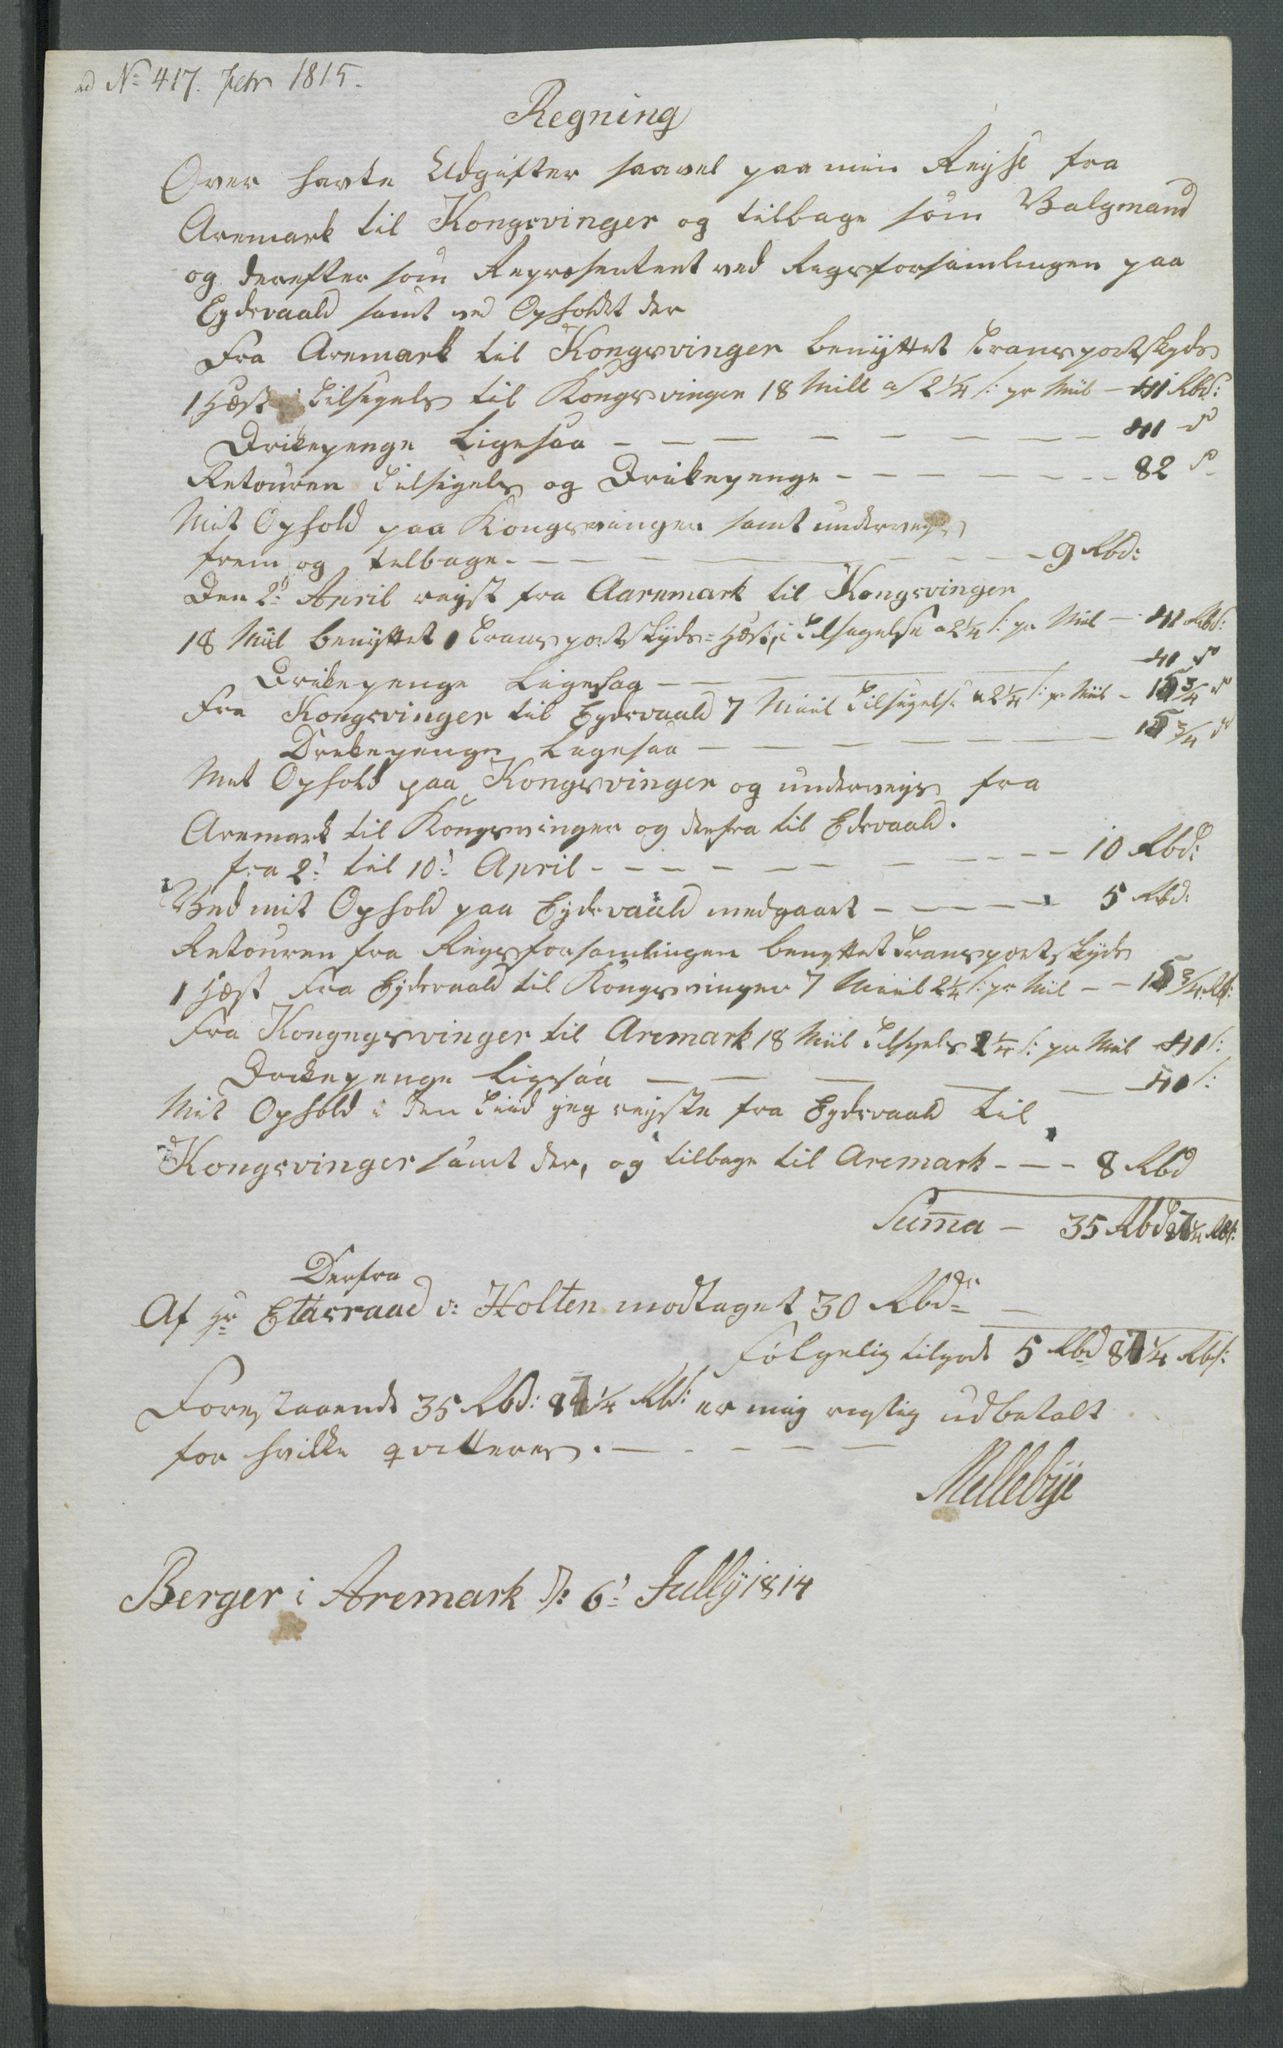 ad No 417. Febr 1815.
Regning
Over havte Udgifter saavel paa min Reyse fra
Aremark til Kongsvinger og tilbage som Valgmand
og derefter som Representent ved Rigsforsamlingen paa
Eydsvaald samt ved Opholdet der
Fra Aremark til Kongsvinger benyttet Transportskyds
1 Hæst i Tilsigels til Kongsvinger 18 Mill a 2 1/4 s: pr Miil - 41 Rbs:
Drikepenge Ligesaa - 41 d
Retouren Tilsigels og Drikepenge - 82 d
Mit Ophold paa Kongsvinger samt underveys
frem og telbage. - 9 Rbd:
Den 2: April reyst fra Aaremark til Kongsvinger
18 Miil benyttet 1 Transportskyds-Hæst, i Tilsigelse a 2 1/4 s: pr Miil - 41 Rbs:
Drikepenge Ligesaa - 41 d
Fra Kongsvinger til Eydsvaald 7 Miiil Tilsigelse a 2 1/4 s: pr Miil - 15 3/4 d
Drikepenge Ligesaa - 15 3/4 d
Mit Ophold paa Kongsvinger og underveys fra
Aremark til Kongsvinger og derfra til Edsvaald.
fra 2: til 10: April - 10 Rbd:
Ved mit Ophold paa Eydsvaald medgaart - 5 Rbd:
Retouren fra Rigsforsamlingen benyttet Transportskyds
1 Hæst Fra Eydsvaald til Kongsvinger 7 Miiil 2 1/4 s: pr Miil - 15 3/4 Rbs:
Fra Kongngsvinger til Aremark 18 Miil Tilsigels 2 1/4 s: pr Miil 41 s:
Drikepenge Ligesaa - 41 s:
Mit Ophold i den Tiid jeg reyste fra Eydsvaald til
Kongsvinger samt der, og tilbage til Aremark - 8 Rbd
Summa - 35 Rbd 87 1/4 Rbs:
Derfra
Af Hr Etasraad v: Holten modtaget 30 Rbdr
Følgelig tilgode 5 Rbd 87 1/4 Rbs:
Forestaaende 35 Rbd: 87 1/4 Rbs: er mig rigtig udbetalt
for hvilke qvitteres.
Mellebye
Berger i Aremark d: 6: Jully 1814